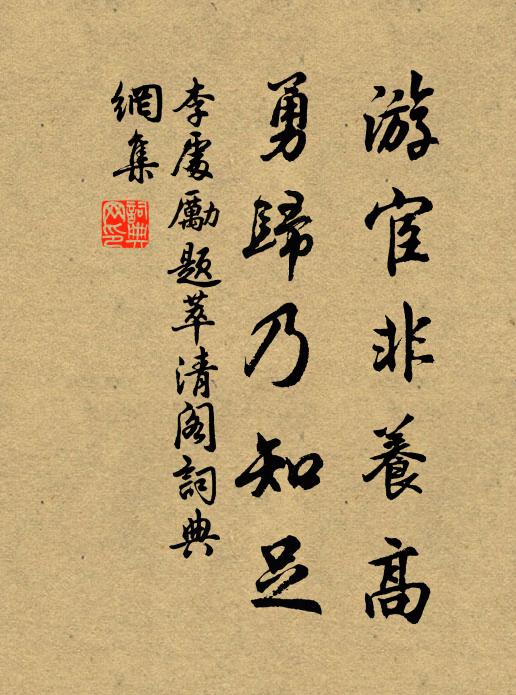 游宦非養高
勇歸乃知足
李處勵题萃清阁詞典
網集
詞典
网印